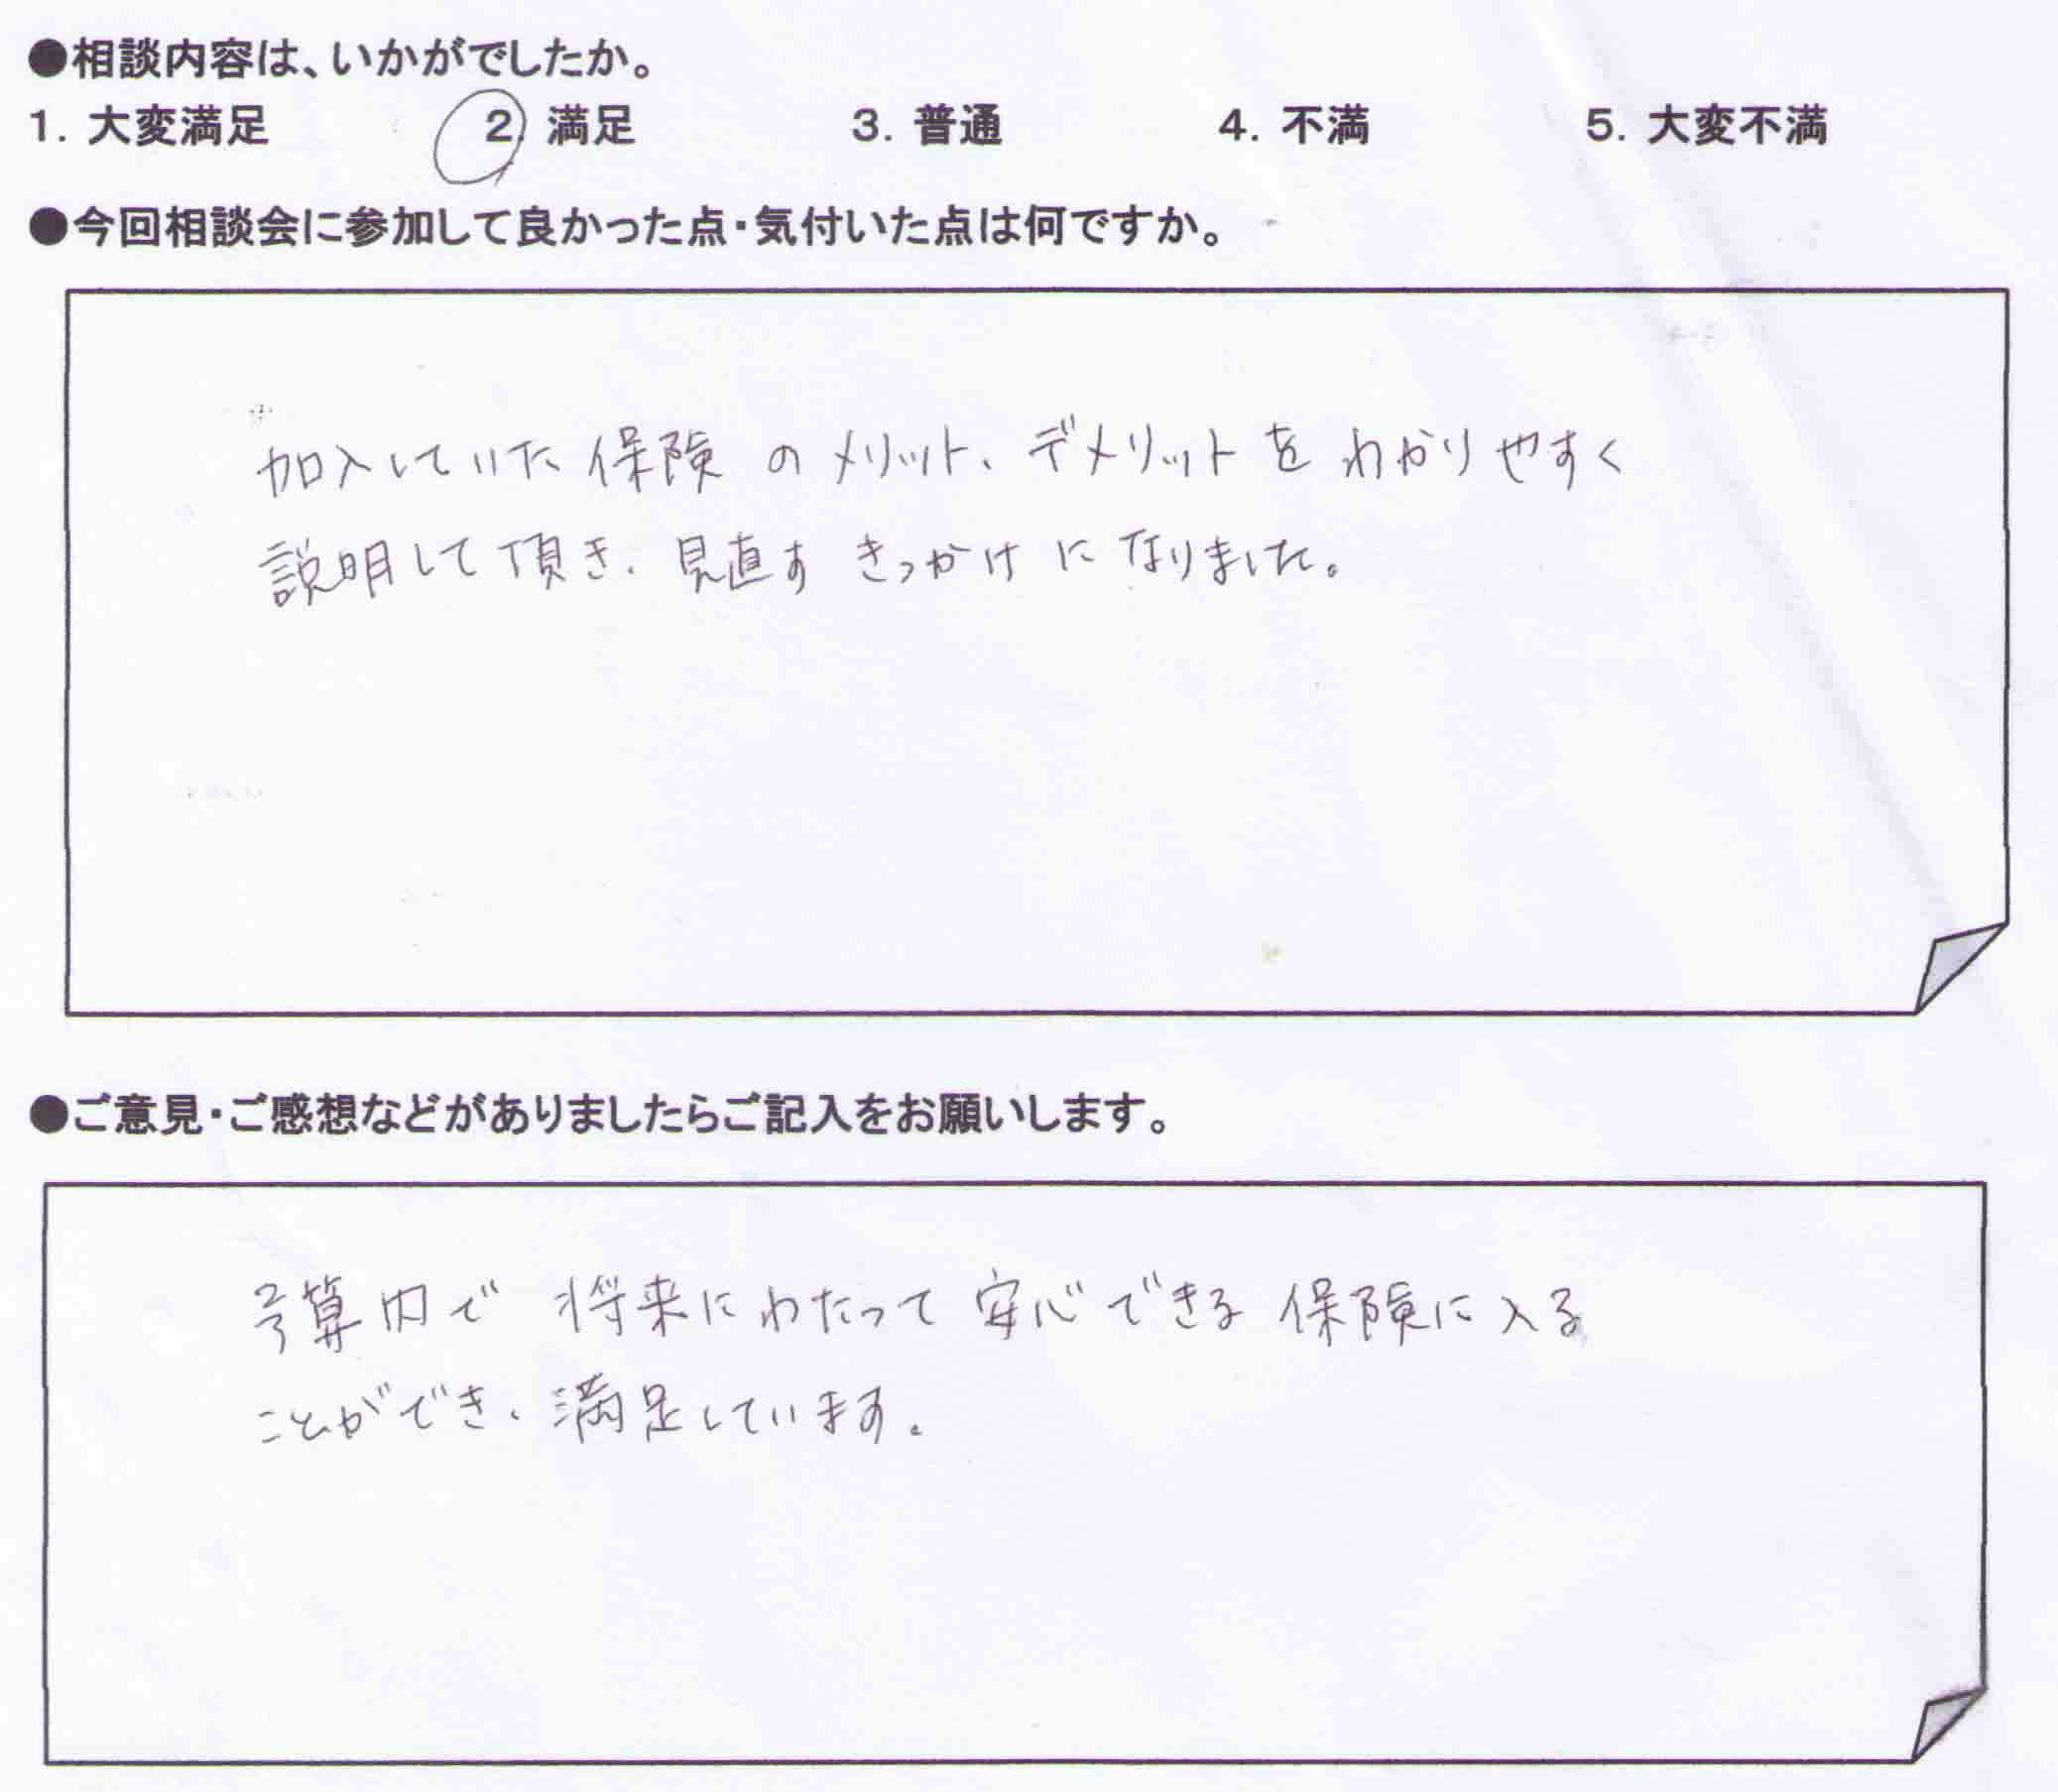 ●相談内容は、いかがでしたか。
1. 大変満足 2. 満足 3. 普通 4. 不満 5. 大変不満
●今回相談会に参加して良かった点・気付いた点は何ですか。
加入していた保険のメリット、デメリットをわかりやすく
説明して頂き、見直すきっかけになりました。
●ご意見・ご感想などがありましたらご記入をお願いします。
予算内で将来にわたって安心できる保険に入る
ことができ、満足しています。